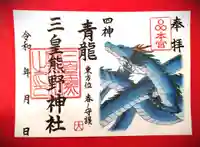 奉拝
本宮
四神
青龍
東方位 春守護
三皇熊野神社
令和 年 月 日